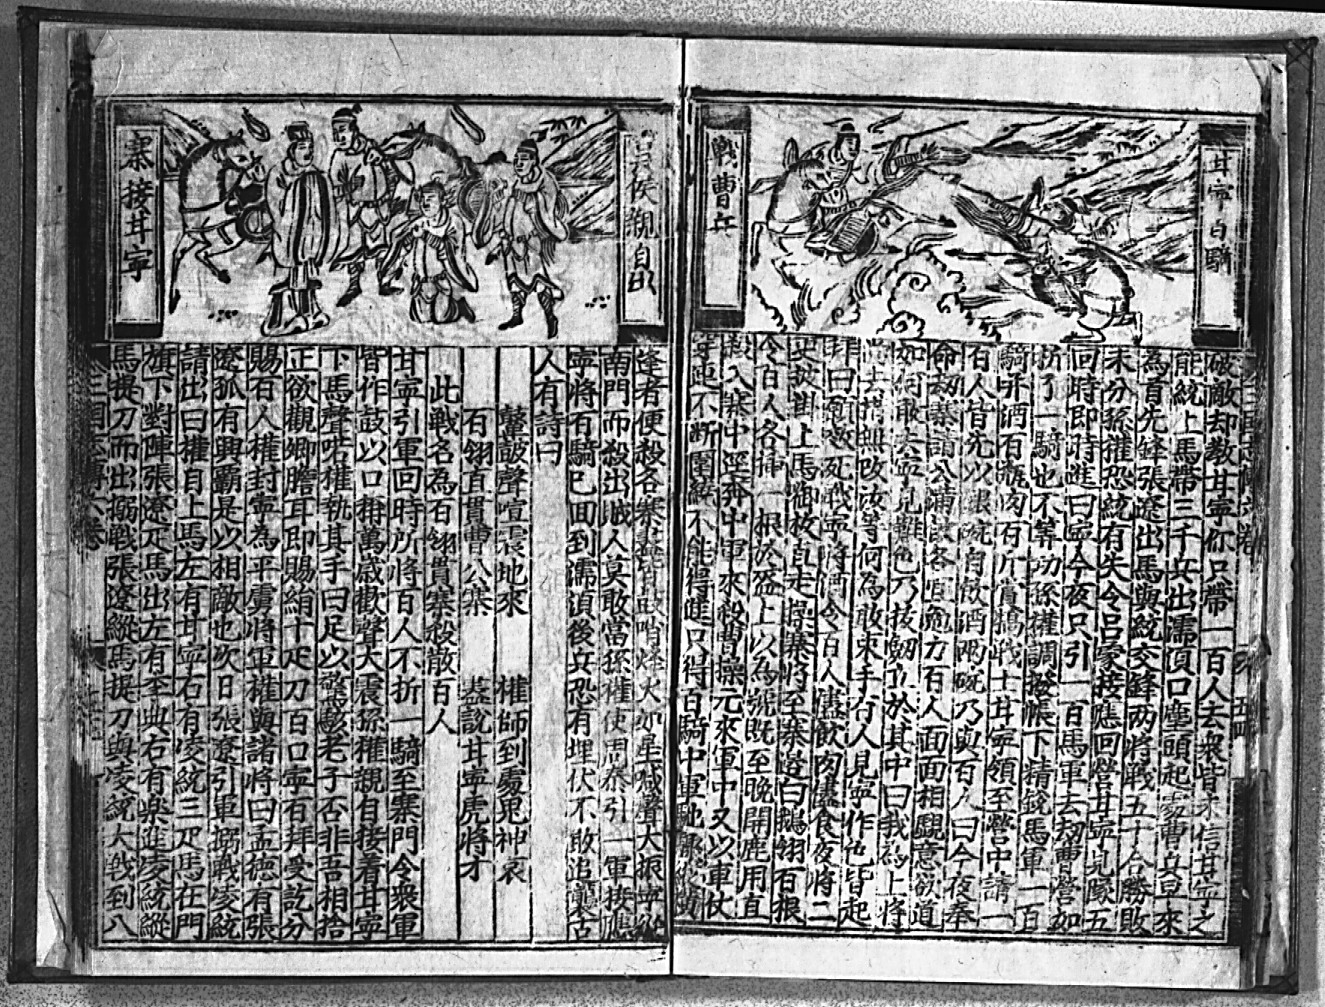 甘寧百騎
戰曹兵
破敵却教甘寧你只帶一百人去衆皆未信甘寧之
能統上馬帶三千兵出濡須口塵頭起處曹兵早來
為首先鋒張遼出馬與統交鋒兩將戰五十合勝敗
未分孫權恐統有失令呂蒙接應回營甘寧見隊五
回時即時進曰寧今夜只引一百馬軍去刼曹營如
折了一騎也不等功孫權調撥帳下精銳馬軍一百
騎并酒百瓶肉百斤賞犒戰士甘寧領至營中請一
百人皆先以銀碗自飲酒兩碗乃與百人曰今夜奉
命刼寨請公滿飲各宜勉力百人面面相覷意欲道
如何敢去寧見難色乃拔劒在於其中曰我為上將
尚去惜無汝等何為敢束手百人見寧作色皆起
拜曰願效死戰寧將酒令百人儘飲肉儘食夜將二
更披掛上馬
令百人各揷一根於盔上以為號既至晚開鹿用直
殺入寨中逕奔中軍來殺曹操元來軍中又以車仗
穿連不斷圍繞不能得進只得百騎中軍馳驟縱橫
呂侯親自出
寨接甘寧
逢者便殺各寨盡皆鼓噪烽火如星喊聲大振寧縱
南門而殺出城人莫敢當孫權使周泰引一軍接應
寧將百騎已回到濡須後兵恐有埋伏不敢追襲古
人有詩曰
鼙皷聲喧震地來　權師到處鬼神哀
百翎直貫曹公寨　盡說甘寧虎將才
此戰名為百翎貫寨殺散百人
甘寧引軍回時所將百人不折一騎至寨門令衆軍
皆作鼓以口稱萬歲歡聲大震孫權親自接着甘寧
下馬聲喏權執其手曰足以驚駭老子否非吾相捨
正欲觀卿膽耳即賜絹十疋刀百口寧百拜受訖分
賜百人權封寧為平虜將軍權與諸將曰孟德有張
遼孤有興霸是以相敵也次日張遼引軍搦戰凌統
請出曰權自上馬左有甘寧右有凌統三疋馬在門
旗下對陣張遼疋馬出左有李典右有樂進凌統縱
馬提刀而出搦戰張遼縱馬提刀與凌統大戰到八
三國志傳六卷